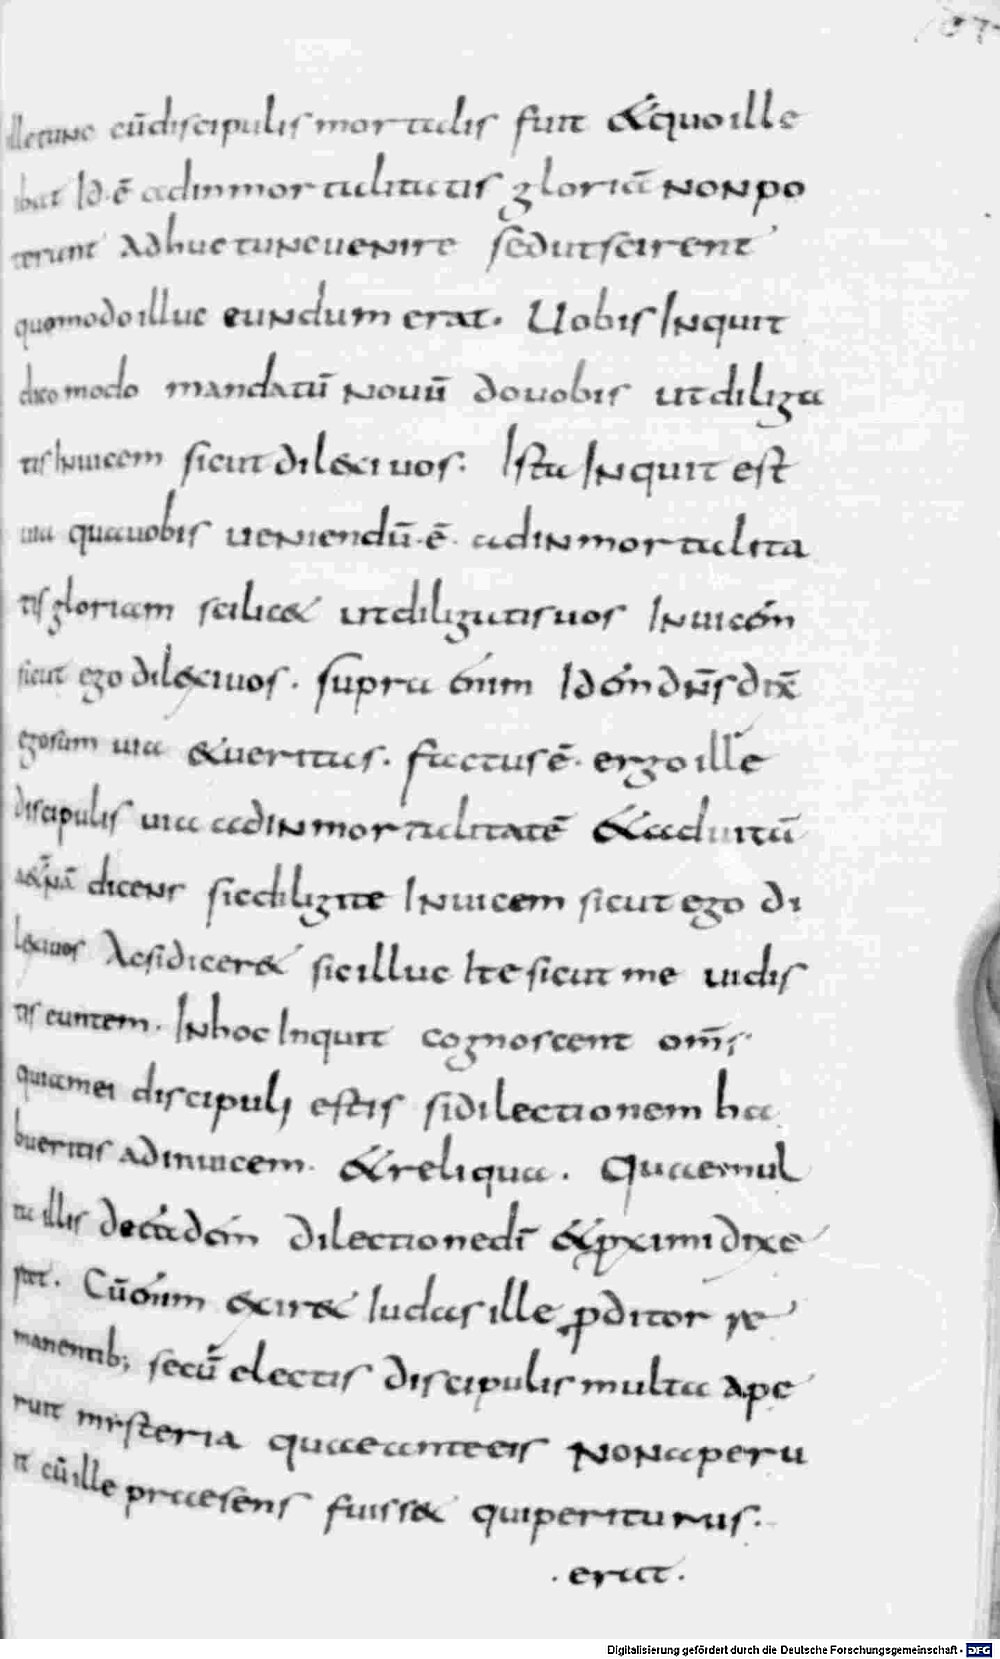 137
ille tunc cū discipulis mortalis fuit & quo ille
ibat Id·ē ad inmortalitatis gloriā non po
terant Adhuc tunc uenire sed ut scirent
quomodo illuc eundum erat. Uobis Inquit
dico modo mandatū nouū do uobis ut diliga
tis Inuicem sicut dilexi uos: Ista Inquit est
uia qua uobis ueniendū·ē· ad inmortalita
tis gloriam scilic& ut diligatis uos Inuicem
sicut ego dilexi uos. supra enim Id en dn̄s dix̄
ego sum uia & ueritas. factus ē· ergo ille
discipulis uia ad inmortalitatē & ad uitā
dicens sic diligite Inuicem sicut ego di
lexi uos Ac si dicer& sic illuc Ite sicut me uidis
tis euntem. In hoc Inquit cognoscent om̄s
quia mei discipuli estis si dilectionem ha
bueritis ad inuicem. & reliqua. Qua e mul
ta illis de eadem dilectione dī & pximi dixe
rit. Cū enim exir& Iudas ille pditor re
manentib; secū electis discipulis multa ape
ruit misteria quae ante eis non aperu
it cū ille praesens fuiss& qui periturus.
.erat.
Digitalisierung gefördert durch die Deutsche Forschungsgemeinschaft - DFG